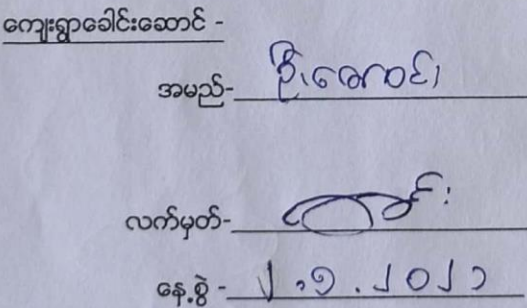 ကျေးရွာခေါင်းဆောင် -
အမည်- ဦး
လက်မှတ်-
နေ့စွဲ - ၂.၁.၂၀၂၁